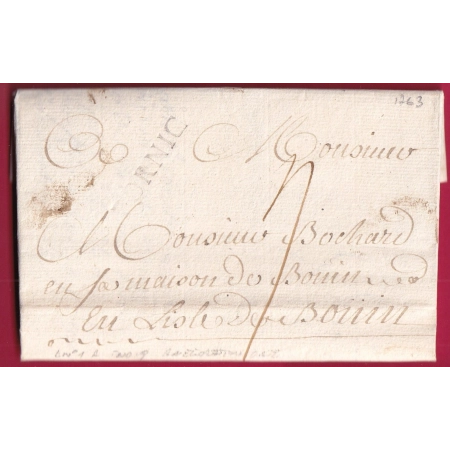 1763
A Monsieur
ORNIC
Monsieur Bochard
en sa maison de Bouin
En Lisle de Bouin